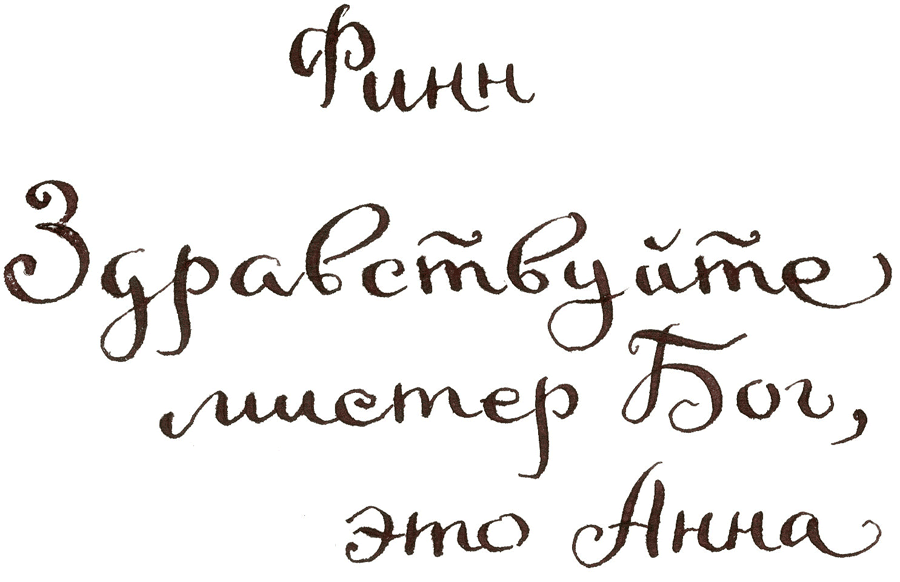 Финн
Здравствуйте
мистер Бог,
это Анна